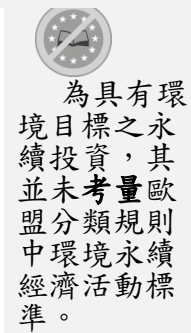 為具有環
境目標之永
續投資，其
並未考量歐
盟分類規則
中環境永續
經濟活動標
準。